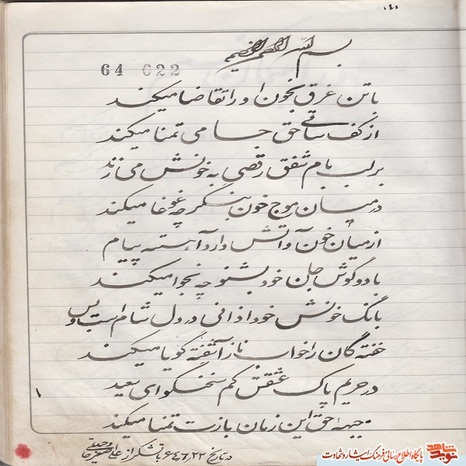 بسم الله الرحمن الرحیم
64 622
با تن غرق بخون او را تقاضا میکند
از کف ساقی حق جامی تمنا میکند
بر لب بام شفق رقصی به خونش می زند
در میان موج خون بنگر چه غوغا میکند
از میان خون و آتش وارد آهسته پیام
با دو گوش جان خود بشنو چه نجوا میکند
بانگ خونش خود اذانی در دل شام است و بس
خفته گان را خواب ناز آشفته گویا میکند
در حریم پاک عشقش کم سخنگو ای بعید
حق این زمان بازت تمنا میکند
در تاریخ ۶۴٫۶٫۲۲ با تشکر از
۱
نوید شاهد
پایگاه اطلاع رسانی فرهنگ ایثار و شهادت